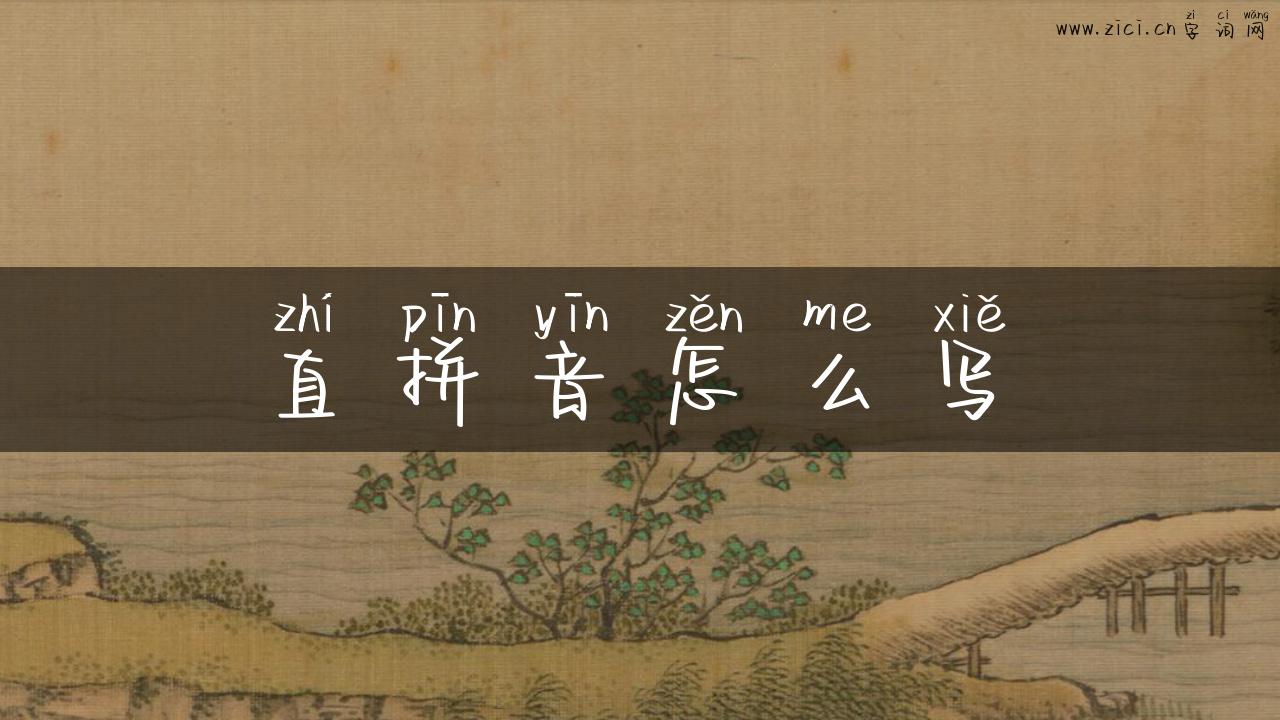 zì cí wǎng
www.zici.cn 字词网
zhí pīn yīn zěn me xiě
直拼音怎么写